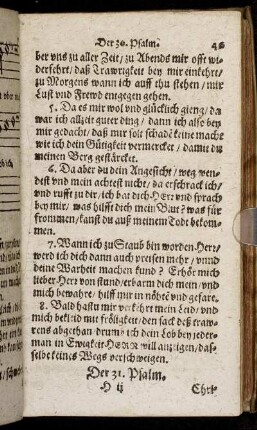 Der 30. Psalm.
ber vns zu aller Zeit/ zu Abends mir offt wi-
derfehrt/ daß Trawrigkeit bey mir einkehrt/
zu Morgens wann ich auff thu stehen / mir
Lust vnd Frewd entgegen gehen.
5. Da es mir wol vnd glücklich gieng/ da
war ich allzeit guter ding / dann ich also bey
mir gedacht/ daß mir solt schade keine macht
wie ich dein Gütigkeit vermercket / damit du
meinen Berg gestärcket.
6. Da aber du dein Angesicht / weg wen-
dest vnd mein achtest nicht/ da erschrack ich/
und rufft zu dir / ich bat dich Herr vnd sprach
bey mir/ was hilfft dich mein Blut? was für
frommen/ kanst du auß meinem Todt bekom-
men.
7. Wann ich zu Staub bin worden Herr/
werd ich dich dann auch preisen mehr / vnnd
deine Warheit machen kund ? Erhör mich
lieber Herr von stund/ erbarm dich mein / vnd
mich bewahre / hilff mir in nöhte vnd gefare.
8. Bald hastu mir verkehrt mein Leid/ vnd
mich bekleid mit fröligkeit/ den sack deß traw-
rens abgethan drum/ ich dein Lob bey jeder-
man in Ewigkeit HERR will anzeigen/ das-
selbe keines Wegs verschweigen.
Der 31. Psalm.
H ij
Chri-